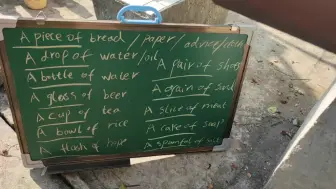 A piece of bread / paper / advice /
A drop of water / oil
A bottle of water
A glass of beer
A cup of tea
A bowl of rice
A flash of hope
A pair of shoes
A grain of sand
A slice of meat
A cake of soap
A spoonful of